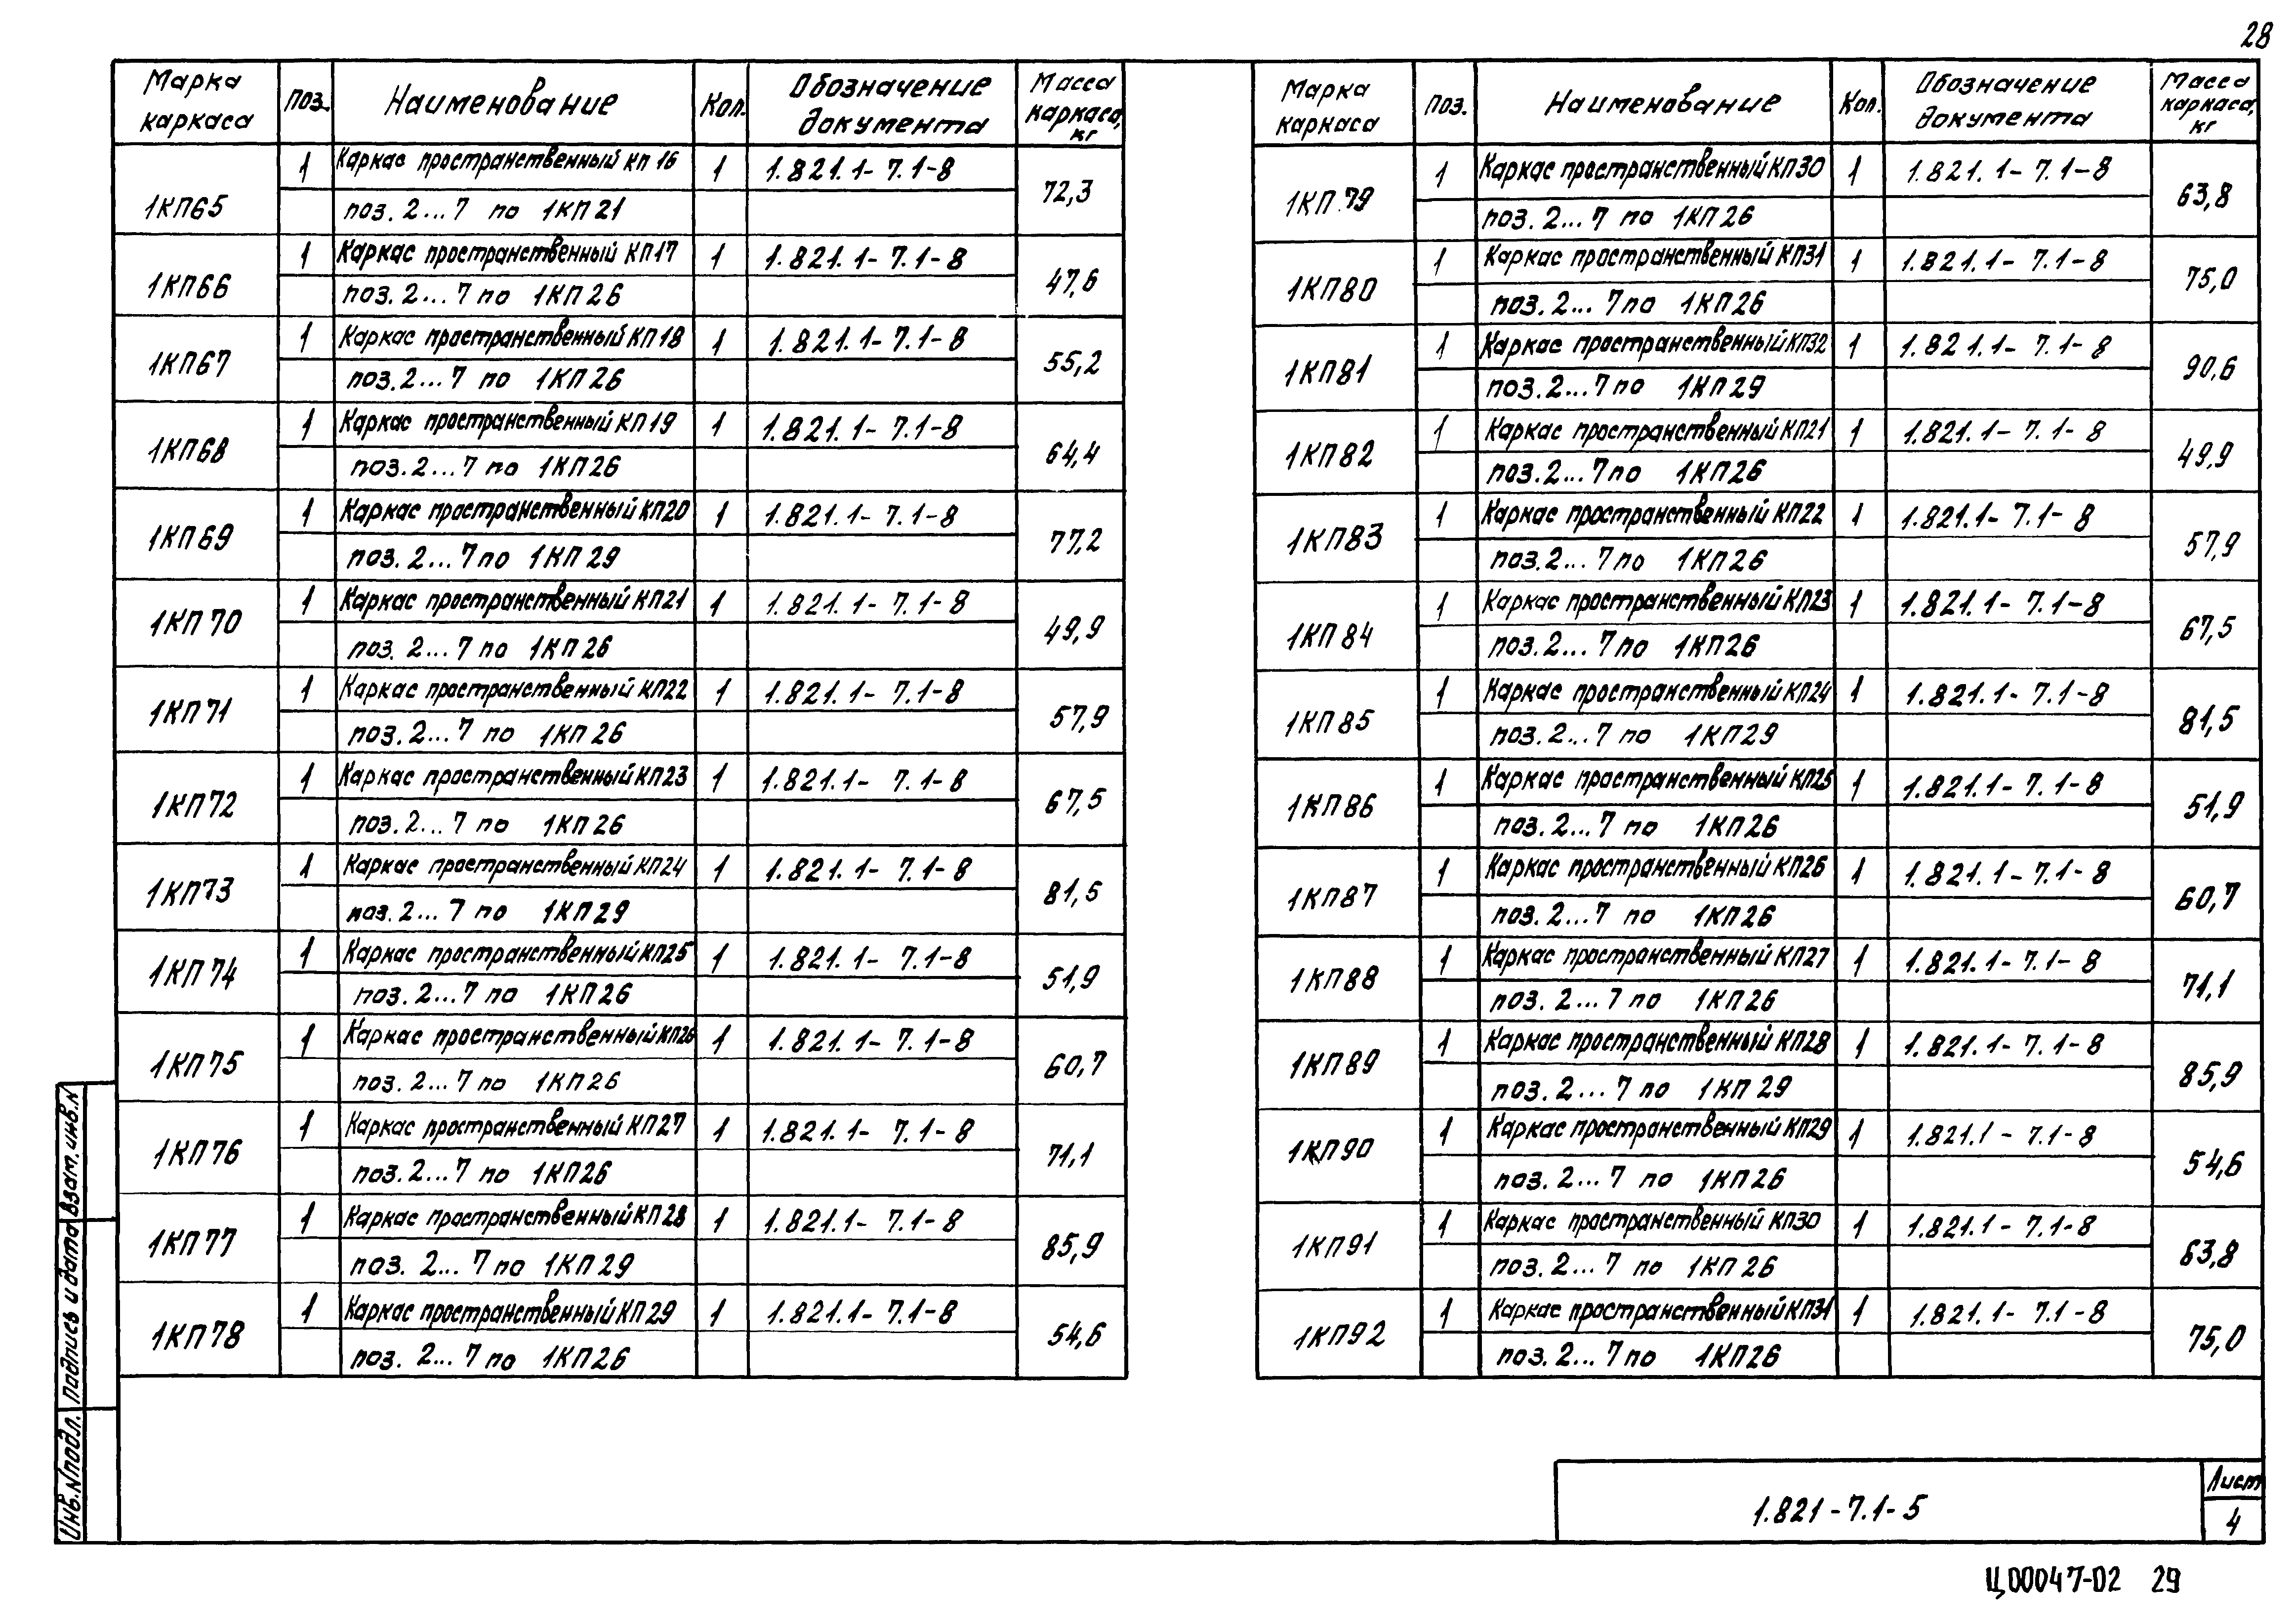 28
Марка каркаса Поз. Наименование Кол. Обозначение документа Масса каркаса, кг
1КП65 1 Каркас пространственный КП 16 1 1.821.1-7.1-8 72,3
поз. 2...7 по 1КП21
1КП66 1 Каркас пространственный КП17 1 1.821.1-7.1-8 47,6
поз. 2...7 по 1КП26
1КП67 1 Каркас пространственный КП18 1 1.821.1-7.1-8 55,2
поз. 2...7 по 1КП26
1КП68 1 Каркас пространственный КП19 1 1.821.1-7.1-8 64,4
поз. 2...7 по 1КП26
1КП69 1 Каркас пространственный КП20 1 1.821.1-7.1-8 77,2
поз. 2...7 по 1КП29
1КП70 1 Каркас пространственный КП21 1 1.821.1-7.1-8 49,9
поз. 2...7 по 1КП26
1КП71 1 Каркас пространственный КП22 1 1.821.1-7.1-8 57,9
поз. 2...7 по 1КП26
1КП72 1 Каркас пространственный КП23 1 1.821.1-7.1-8 67,5
поз. 2...7 по 1КП26
1КП73 1 Каркас пространственный КП24 1 1.821.1-7.1-8 81,5
поз. 2...7 по 1КП29
1КП74 1 Каркас пространственный КП25 1 1.821.1-7.1-8 51,9
поз. 2...7 по 1КП26
1КП75 1 Каркас пространственный КП26 1 1.821.1-7.1-8 60,7
поз. 2...7 по 1КП26
1КП76 1 Каркас пространственный КП27 1 1.821.1-7.1-8 71,1
поз. 2...7 по 1КП26
1КП77 1 Каркас пространственный КП28 1 1.821.1-7.1-8 85,9
поз. 2...7 по 1КП29
1КП78 1 Каркас пространственный КП29 1 1.821.1-7.1-8 54,6
поз. 2...7 по 1КП26
Марка каркаса Поз. Наименование Кол. Обозначение документа Масса каркаса, кг
1КП79 1 Каркас пространственный КП30 1 1.821.1-7.1-8 63,8
поз. 2...7 по 1КП26
1КП80 1 Каркас пространственный КП31 1 1.821.1-7.1-8 75,0
поз. 2...7 по 1КП26
1КП81 1 Каркас пространственный КП32 1 1.821.1-7.1-8 90,6
поз. 2...7 по 1КП29
1КП82 1 Каркас пространственный КП21 1 1.821.1-7.1-8 49,9
поз. 2...7 по 1КП26
1КП83 1 Каркас пространственный КП22 1 1.821.1-7.1-8 57,9
поз. 2...7 по 1КП26
1КП84 1 Каркас пространственный КП23 1 1.821.1-7.1-8 67,5
поз. 2...7 по 1КП26
1КП85 1 Каркас пространственный КП24 1 1.821.1-7.1-8 81,5
поз. 2...7 по 1КП29
1КП86 1 Каркас пространственный КП25 1 1.821.1-7.1-8 51,9
поз. 2...7 по 1КП26
1КП87 1 Каркас пространственный КП26 1 1.821.1-7.1-8 60,7
поз. 2...7 по 1КП26
1КП88 1 Каркас пространственный КП27 1 1.821.1-7.1-8 71,1
поз. 2...7 по 1КП26
1КП89 1 Каркас пространственный КП28 1 1.821.1-7.1-8 85,9
поз. 2...7 по 1КП29
1КП90 1 Каркас пространственный КП29 1 1.821.1-7.1-8 54,6
поз. 2...7 по 1КП26
1КП91 1 Каркас пространственный КП30 1 1.821.1-7.1-8 63,8
поз. 2...7 по 1КП26
1КП92 1 Каркас пространственный КП31 1 1.821.1-7.1-8 75,0
поз. 2...7 по 1КП26
Инв.N подл. Подпись и дата Взам. инв. N
1.821-7.1-5
Лист
4
Ц00047-02 29